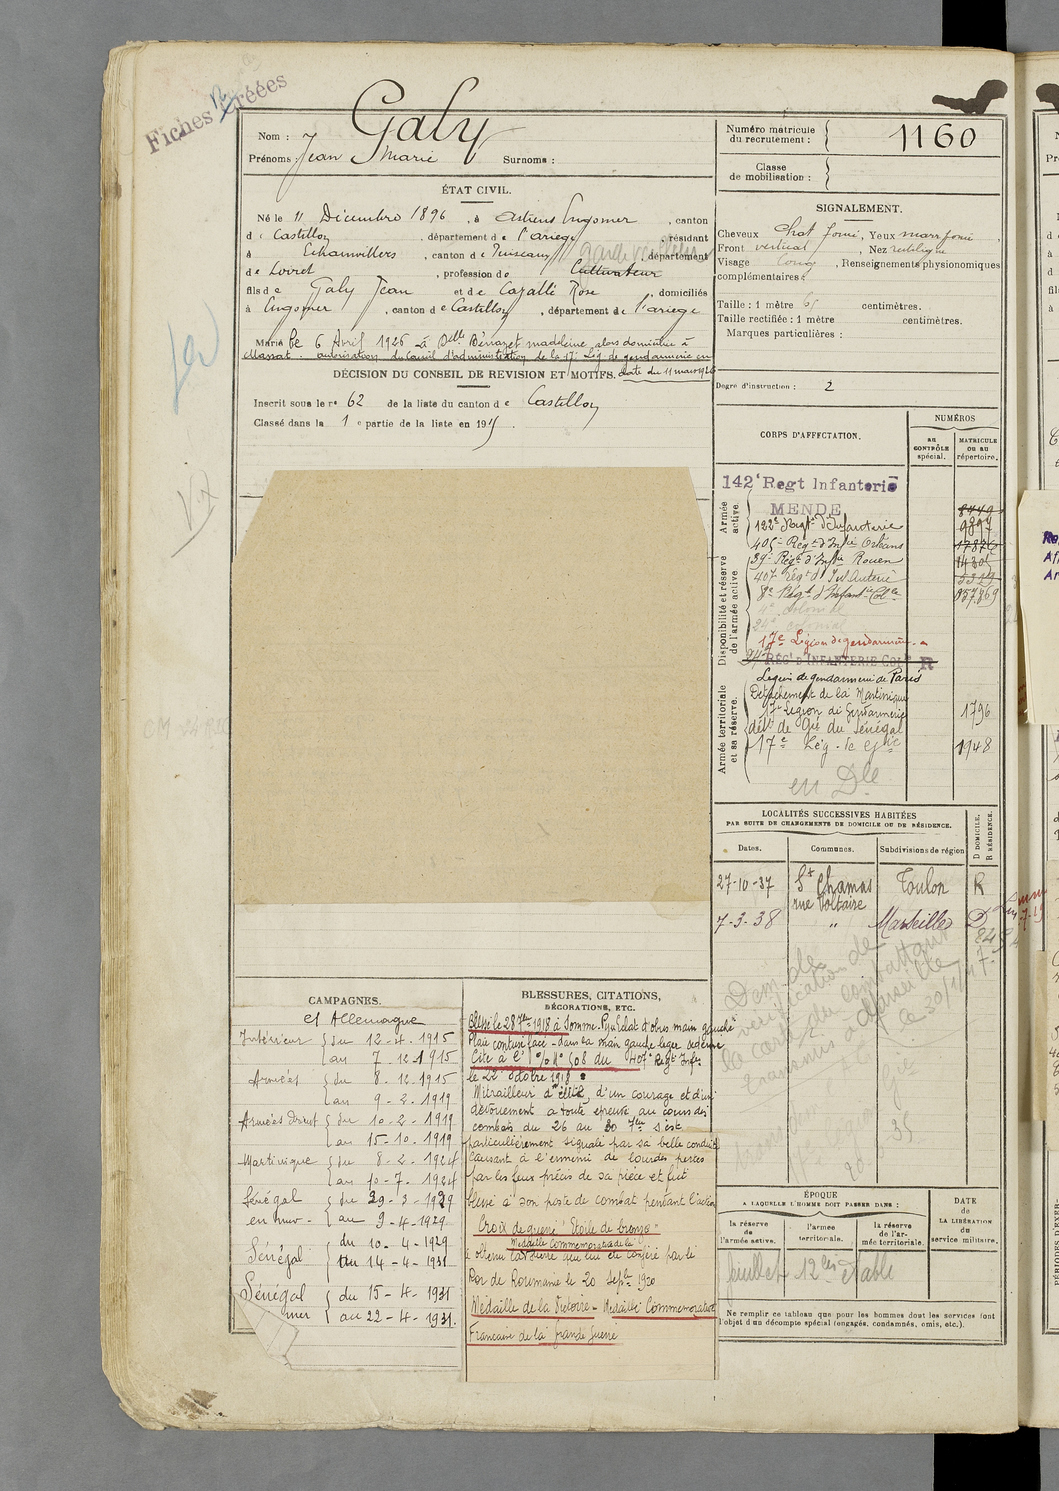 Fiches créées
Nom : Galy
Prénoms : Jean Marie Surnoms :
Numéro matricule du recrutement : 1160
Classe de mobilisation :
ÉTAT CIVIL.
Né le 11 Décembre 1896, à Engomer, canton
de Castillon, département de l'ariege, résidant
à Echainvillers, canton de, département
de Loiret, profession de Cultivateur
fils de Galy Jean et de Cazalle Rose, domiciliés
à Engomer, canton de Castillon, département de l'ariege
Marié le 6 Avril 1926 à Delle Bénazet madeleine, alors domiciliée à
Massat. autorisation du Conseil d'administration de la 17e Lég de gendarmerie en
date du 11 mars 1926
DÉCISION DU CONSEIL DE REVISION ET MOTIFS.
Inscrit sous le no 62 de la liste du canton de Castillon
Classé dans la 1e partie de la liste en 1915.
SIGNALEMENT.
Cheveux chat foncé, Yeux marr foncé,
Front vertical, Nez rectiligne
Visage long, Renseignements physionomiques
complémentaires :
Taille : 1 mètre 65 centimètres.
Taille rectifiée : 1 mètre centimètres.
Marques particulières :
Degré d'instruction : 2
CORPS D'AFFECTATION.
NUMÉROS
au CONTRÔLE spécial.
MATRICULE OU AU répertoire.
Armée active.
142e Regt Infanterie
MENDE 8449
122e Régt d'Infanterie 9897
405e Régt d'Infie Orléans 17876
Disponibilité et réserve de l'armée active
39e Régt d'Infie Rouen 14305
407 Régt d'Infanterie 5323
8e Régt d'Infantie Cole
4e colonial
24e colonial
17e Légion de gendarmerie
24e RÉGt D'INFANTERIE COLe R
Légion de gendarmerie de Paris
Armée territoriale et sa réserve.
Détachement de la Martinique
17e Légion de Gendarmerie 1796
détt de Gie du Sénégal
17e Lég. de Gie 1948
en Dle
LOCALITÉS SUCCESSIVES HABITÉES
PAR SUITE DE CHANGEMENTS DE DOMICILE OU DE RÉSIDENCE.
Dates. Communes. Subdivisions de région D DOMICILE. R RÉSIDENCE.
27-10-37 St Chamas Toulon R
rue Voltaire
7-3-38 " Marseille D
CAMPAGNES.
et Allemagne
Intérieur du 12-4-1915
au 7-12-1915
Armées du 8-12-1915
au 9-2-1919
Armées Orient du 10-2-1919
au 15-10-1919
Martinique du 8-2-1924
au 10-7-1924
Sénégal du 29-3-1929
en mer - au 9-4-1929
Sénégal du 10-4-1929
au 14-4-1931
Sénégal du 15-4-1931
mer au 22-4-1931.
BLESSURES, CITATIONS,
DÉCORATIONS, ETC.
Blessé le 28 7bre 1918 à Somme-Py éclat d'obus main gauche
Plaie contuse face - dans la main gauche
Cité à l'O/ No 508 du 407e Régt Infie
le 22 octobre 1918
Mitrailleur d'élite, d'un courage et d'un
dévouement a toute épreuve au cours des
combats du 26 au 30 7bre s'est
particulièrement signalé par sa belle conduite
causant à l'ennemi de lourdes pertes
par les feux précis de sa pièce et fut
blessé à son poste de combat pendant l'action
Croix de guerre "Etoile de bronze"
Médaille Commemorative de la
Roi de Roumanie le 20 Septbre 1920
Médaille de la Victoire - Médaille Commemorative
Francaise de la grande Guerre
Demande de
vérification de
la carte du combattant
transmis à Marseille
le 20/1/47
ÉPOQUE
A LAQUELLE L'HOMME DOIT PASSER DANS :
la réserve de l'armée active. l'armée territoriale. la réserve de l'armée territoriale.
DATE de LA LIBÉRATION du service militaire.
Ne remplir ce tableau que pour les hommes dont les services font
l'objet d'un décompte spécial (engagés, condamnés, omis, etc.).